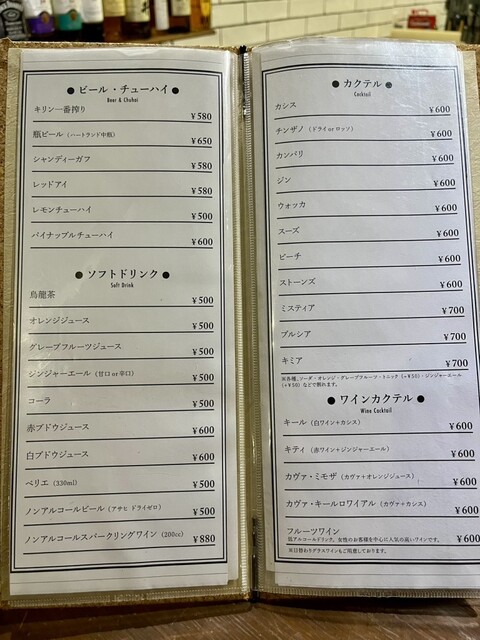 ● ビール・チューハイ ●
Beer & Chuhai
キリン一番搾り ¥580
瓶ビール（ハートランド中瓶） ¥650
シャンディーガフ ¥580
レッドアイ ¥580
レモンチューハイ ¥500
パイナップルチューハイ ¥600
● ソフトドリンク ●
Soft Drink
烏龍茶 ¥500
オレンジジュース ¥500
グレープフルーツジュース ¥500
ジンジャーエール（甘口 or 辛口） ¥500
コーラ ¥500
赤ブドウジュース ¥600
白ブドウジュース ¥600
ペリエ（330ml） ¥500
ノンアルコールビール（アサヒ ドライゼロ） ¥500
ノンアルコールスパークリングワイン（200cc） ¥880
● カクテル ●
Cocktail
カシス ¥600
チンザノ（ドライ or ロッソ） ¥600
カンパリ ¥600
ジン ¥600
ウォッカ ¥600
スーズ ¥600
ピーチ ¥600
ストーンズ ¥600
ミスティア ¥700
ブルシア ¥700
キミア ¥700
※各種、ソーダ・オレンジ・グレープフルーツ・トニック（+¥50）・ジンジャーエール
（+¥50）などで割れます。
● ワインカクテル ●
Wine Cocktail
キール（白ワイン+カシス） ¥600
キティ（赤ワイン+ジンジャーエール） ¥600
カヴァ・ミモザ（カヴァ+オレンジジュース） ¥600
カヴァ・キールロワイアル（カヴァ+カシス） ¥600
フルーツワイン ¥600
低アルコールドリンク。女性のお客様を中心に人気の高いワインです。
※日替わりグラスワインもご用意しております。